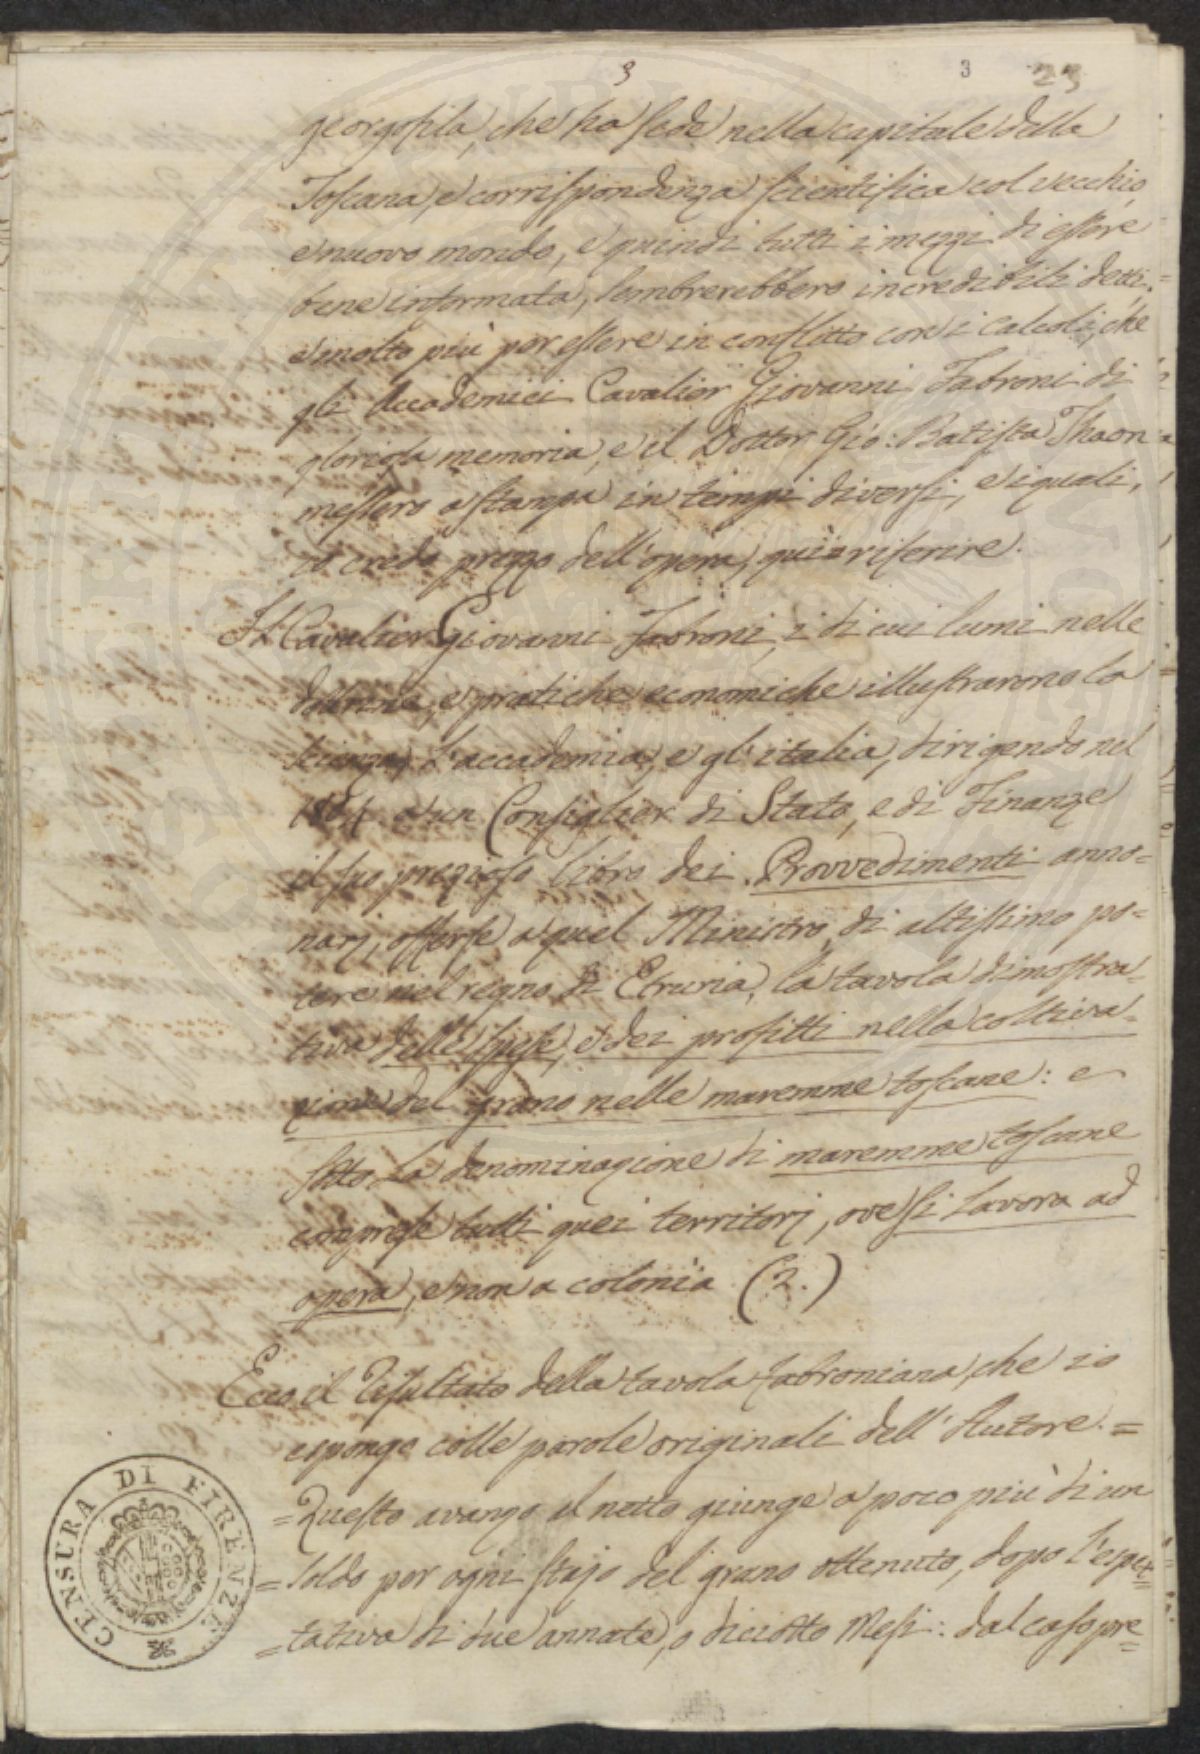 3 3 23
georgofila, che ha sede nella capitale della
Toscana, e corrispondenza scientifica col vecchio,
e nuovo mondo, e quindi tutti i mezzi di essere
bene informata, sembrerebbero incredibili detti,=
e molto più per essere in conflitto con i calcoli, che
gli Accademici Cavalier Giovanni Fabroni di
gloriosa memoria, e il Dottor Gio: Batista Thaon=
messero a stampa in tempi diversi, e i quali,
io credo prezzo dell'opera, quì riferire.
Il Cavalier Giovanni Fabroni, i di cui lumi nelle
dottrine, e pratiche economiche illustrarono la
scienza, l'accademia, e gl'italia, dirigendo nel
1804 a un Consiglier di Stato, e di Finanze
il suo prezioso libro dei Provvedimenti anno=
narj, offerse a quel Ministro di altissimo po=
tere nel regno di Etruria, la tavola dimostra=
tiva delle spese, e dei profitti nella coltiva=
zione del grano nelle maremme toscane: e
sotto la denominazione di maremme toscane
comprese tutti quei territorj, ove si lavora ad
opera, e non a colonìa (2.)
Ecco il Risultato della tavola fabroniana, che io
espongo colle parole originali dell'Autore.=
=Questo avanzo al netto giunge a poco più di un
=soldo per ogni stajo del grano ottenuto, dopo l'espet=
=tativa di due annate, o diciotto Mesi: dal caso pre=
CENSURA DI FIRENZE